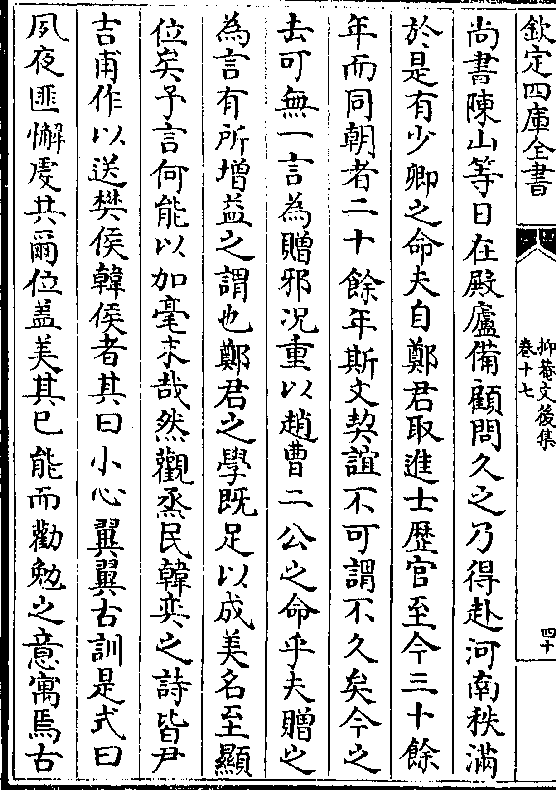 欽定四庫全書
抑菴文後集
卷十七
四十
尚書陳山等日在殿廬備顧問久之乃得赴河南秩滿
於是有少卿之命夫自鄭君取進士歷官至今三十餘
年而同朝者二十餘年斯文契誼不可謂不久矣今之
去可無一言為贈邪况重以趙曹二公之命乎夫贈之
為言有所增益之謂也鄭君之學既足以成美名至顯
位矣予言何能以加毫末哉然觀烝民韓奕之詩皆尹
吉甫作以送樊侯韓侯者其曰小心翼翼古訓是式曰
夙夜匪懈虔共爾位盖美其已能而勸勉之意寓焉古